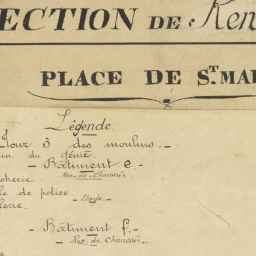 ECTION DE Ren
PLACE DE ST. MAL
Légende.
Tour 3 des moulins. _
du génie
_ Bâtiment e. _
Rez. de Chaussée
de police
_ Bâtiment f. _
Rez. de Chaussée